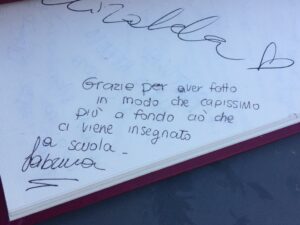 Grazie per aver fatto
in modo che capissimo
più a fondo ciò che
ci viene insegnato
a scuola.